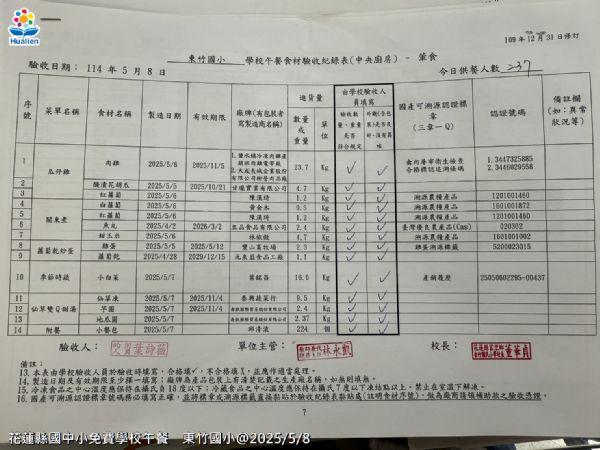 Hualien
109年12月31日修訂
東竹國小 學校午餐食材驗收紀錄表(中央廚房) - 葷食
驗收日期: 114 年 5 月 8 日 今日供餐人數 237
序號 菜單名稱 食材名稱 製造日期 有效期限 廠牌(有包裝者寫製造商名稱) 進貨量 數量或重量 單位 由學校驗收人員填寫 驗收數量、重量是否符合規定 國產可溯源認證標章(三章一Q) 認證號碼 備註欄(如:異常狀況等)
1 瓜仔雞 肉雞 2025/5/6 2025/11/5 23.7 Kg ✓ ✓ 1.3447325885
2 醃漬花胡瓜 2025/5/5 2025/10/21 4.7 Kg ✓ ✓
3 關東煮 紅蘿蔔 2025/5/5 陳漢琦 1.2 Kg ✓ ✓ 溯源農糧產品 1201001460
4 白蘿蔔 2025/5/6 黃金木 9.5 Kg ✓ ✓ 溯源農糧產品 1501001872
5 紅蘿蔔 2025/5/6 陳漢琦 1.2 Kg ✓ ✓ 溯源農糧產品 1201001460
6 魚丸 2025/4/2 2026/3/2 2.4 Kg ✓ ✓ 臺灣優良農產品(Cas) 020302
7 甜玉米 2025/5/6 4.7 Kg ✓ ✓ 溯源農糧產品 1601001002
8 蘿蔔乾炒蛋 雞蛋 2025/5/5 2025/5/12 豐山畜牧場 2.3 Kg ✓ ✓ 雞蛋溯源標籤 5200023015
9 蘿蔔乾 2025/4/28 2029/12/15 元泉益食品工廠 1.1 Kg ✓ ✓
10 季節時蔬 小白菜 2025/5/7 葉銘昌 16.0 Kg ✓ ✓ 產銷履歷 25050602295-00437
11 仙草雙Q甜湯 仙草凍 2025/5/7 2025/11/4 泰興蔬菜行 9.5 Kg ✓ ✓
12 芋圓 2025/5/7 2025/11/4 2.4 Kg ✓ ✓
13 地瓜圓 2025/5/7 2.37 Kg ✓ ✓
14 附餐 小餐包 2025/5/7 邱清波 224 個 ✓ ✓
驗收人: 葉詩薇 單位主管: 林永凱 校長: 董韋貞
備註:
13. 本表由學校驗收人員於驗收時填寫,合格填✓,不合格填X,並應作適當處理。
14. 製造日期及有效期限至少擇一填寫;廠牌為產品包裝上有清楚記載之生產廠名稱,如無則填無。
15. 冷凍食品之中心溫度應保持在攝氏負18度以下;冷藏食品之中心溫度應保持在攝氏7度以下凍結點以上。禁止在室溫下解凍。
16. 國產可溯源認證標章號碼務必填寫正確,並將標章或溯源標籤直接黏貼於驗收紀錄表黏貼處(註明食材序號),做為廠商請領補助款之驗收憑證。
7
花蓮縣國中小免費學校午餐 東竹國小@2025/5/8